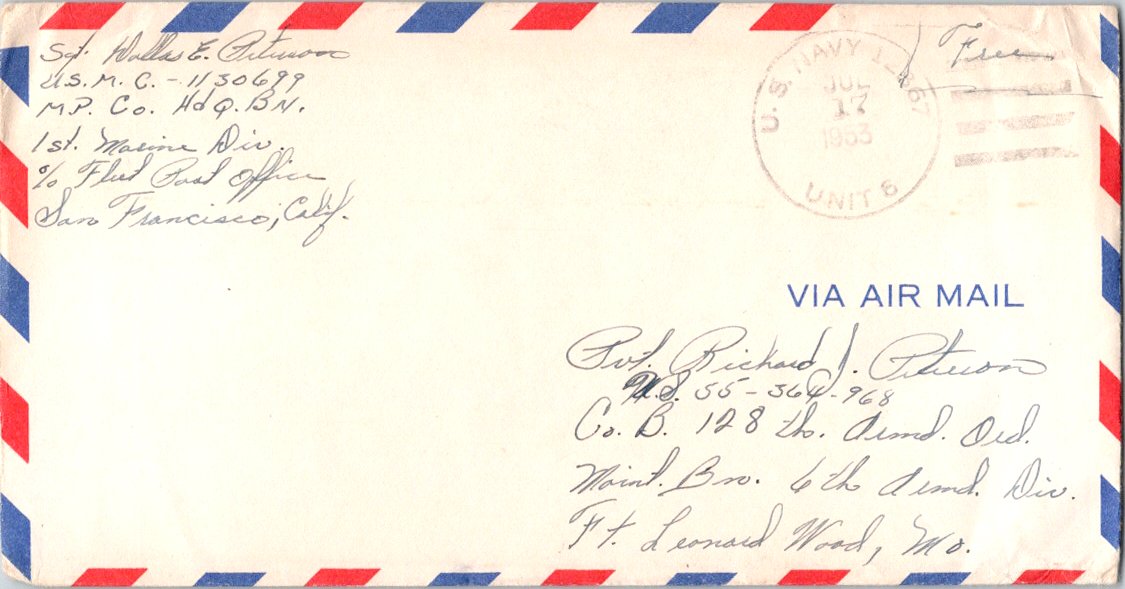 Sgt. Wallas E. Peterson
U.S.M.C. - 1130699
M.P. Co. HdQ. BN.
1st. Marine Div.
℅ Fleet Post Office
San Francisco, Calif.
Free
U.S. NAVY 12867
JUL
17
1953
UNIT 6
VIA AIR MAIL
Pvt. Richard J. Peterson
U.S. 55-364-968
Co. B. 128 th. Armd. Ord.
Maint. Bn. 6th Armd. Div.
Ft. Leonard Wood, Mo.